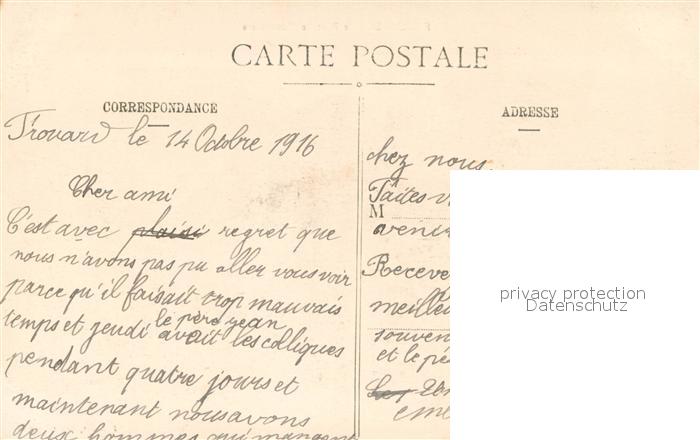 CARTE POSTALE
CORRESPONDANCE
Trouard le 14 Octobre 1916
Cher ami
C'est avec plaisi regret que
nous n'avons pas pu aller vous voir
parce qu'il faisait trop mauvais
temps et jeudi le père jean
avait les colliques
pendant quatre jours et
maintenant nous avons
deux hommes qui mangent
ADRESSE
chez nous.
Faites v
M
venir
Receve
meille
souven
et le pè
privacy protection
Datenschutz